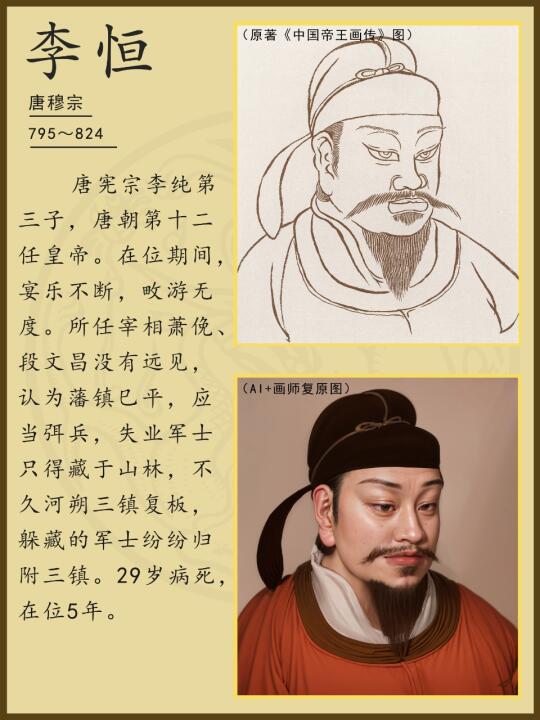 李恒
唐穆宗
795～824
唐宪宗李纯第
三子，唐朝第十二
任皇帝。在位期间，
宴乐不断，畋游无
度。所任宰相萧俛、
段文昌没有远见，
认为藩镇已平，应
当弭兵，失业军士
只得藏于山林，不
久河朔三镇复板，
躲藏的军士纷纷归
附三镇。29岁病死，
在位5年。
（原著《中国帝王画传》图）
（AI+画师复原图）